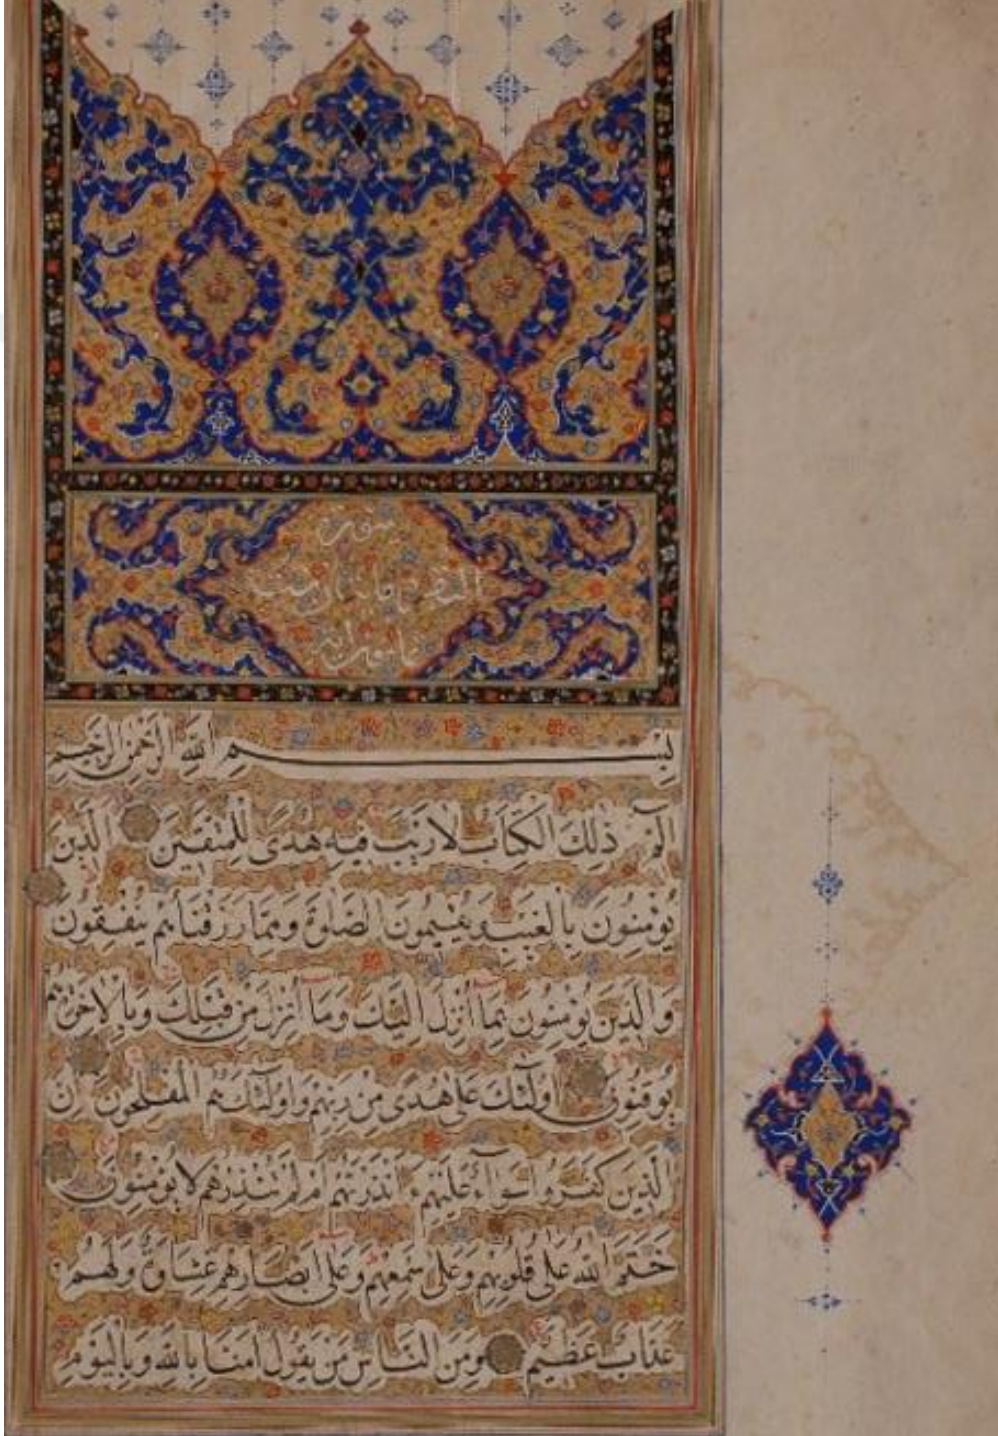 سورة
البقرة مائتان وست
وثمانون آية
بِسْمِ اللَّهِ الرَّحْمَٰنِ الرَّحِيمِ
الم ذَٰلِكَ الْكِتَابُ لَا رَيْبَ فِيهِ هُدًى لِلْمُتَّقِينَ الَّذِينَ
يُؤْمِنُونَ بِالْغَيْبِ وَيُقِيمُونَ الصَّلَوٰةَ وَمِمَّا رَزَقْنَاهُمْ يُنْفِقُونَ
وَالَّذِينَ يُؤْمِنُونَ بِمَا أُنْزِلَ إِلَيْكَ وَمَا أُنْزِلَ مِنْ قَبْلِكَ وَبِالْآخِرَةِ هُمْ
يُوقِنُونَ أُولَٰئِكَ عَلَىٰ هُدًى مِنْ رَبِّهِمْ وَأُولَٰئِكَ هُمُ الْمُفْلِحُونَ إِنَّ
الَّذِينَ كَفَرُوا سَوَاءٌ عَلَيْهِمْ ءَأَنْذَرْتَهُمْ أَمْ لَمْ تُنْذِرْهُمْ لَا يُؤْمِنُونَ
خَتَمَ اللَّهُ عَلَىٰ قُلُوبِهِمْ وَعَلَىٰ سَمْعِهِمْ وَعَلَىٰ أَبْصَارِهِمْ غِشَاوَةٌ وَلَهُمْ
عَذَابٌ عَظِيمٌ وَمِنَ النَّاسِ مَنْ يَقُولُ آمَنَّا بِاللَّهِ وَبِالْيَوْمِ